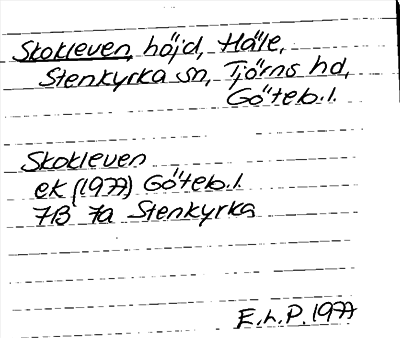 Skokleven, höjd, Häle,
Stenkyrka sn, Tjörns hd,
Göteb.l.
Skokleven
ek (1977) Göteb.l.
7B 7a Stenkyrka
E.h.P. 1977